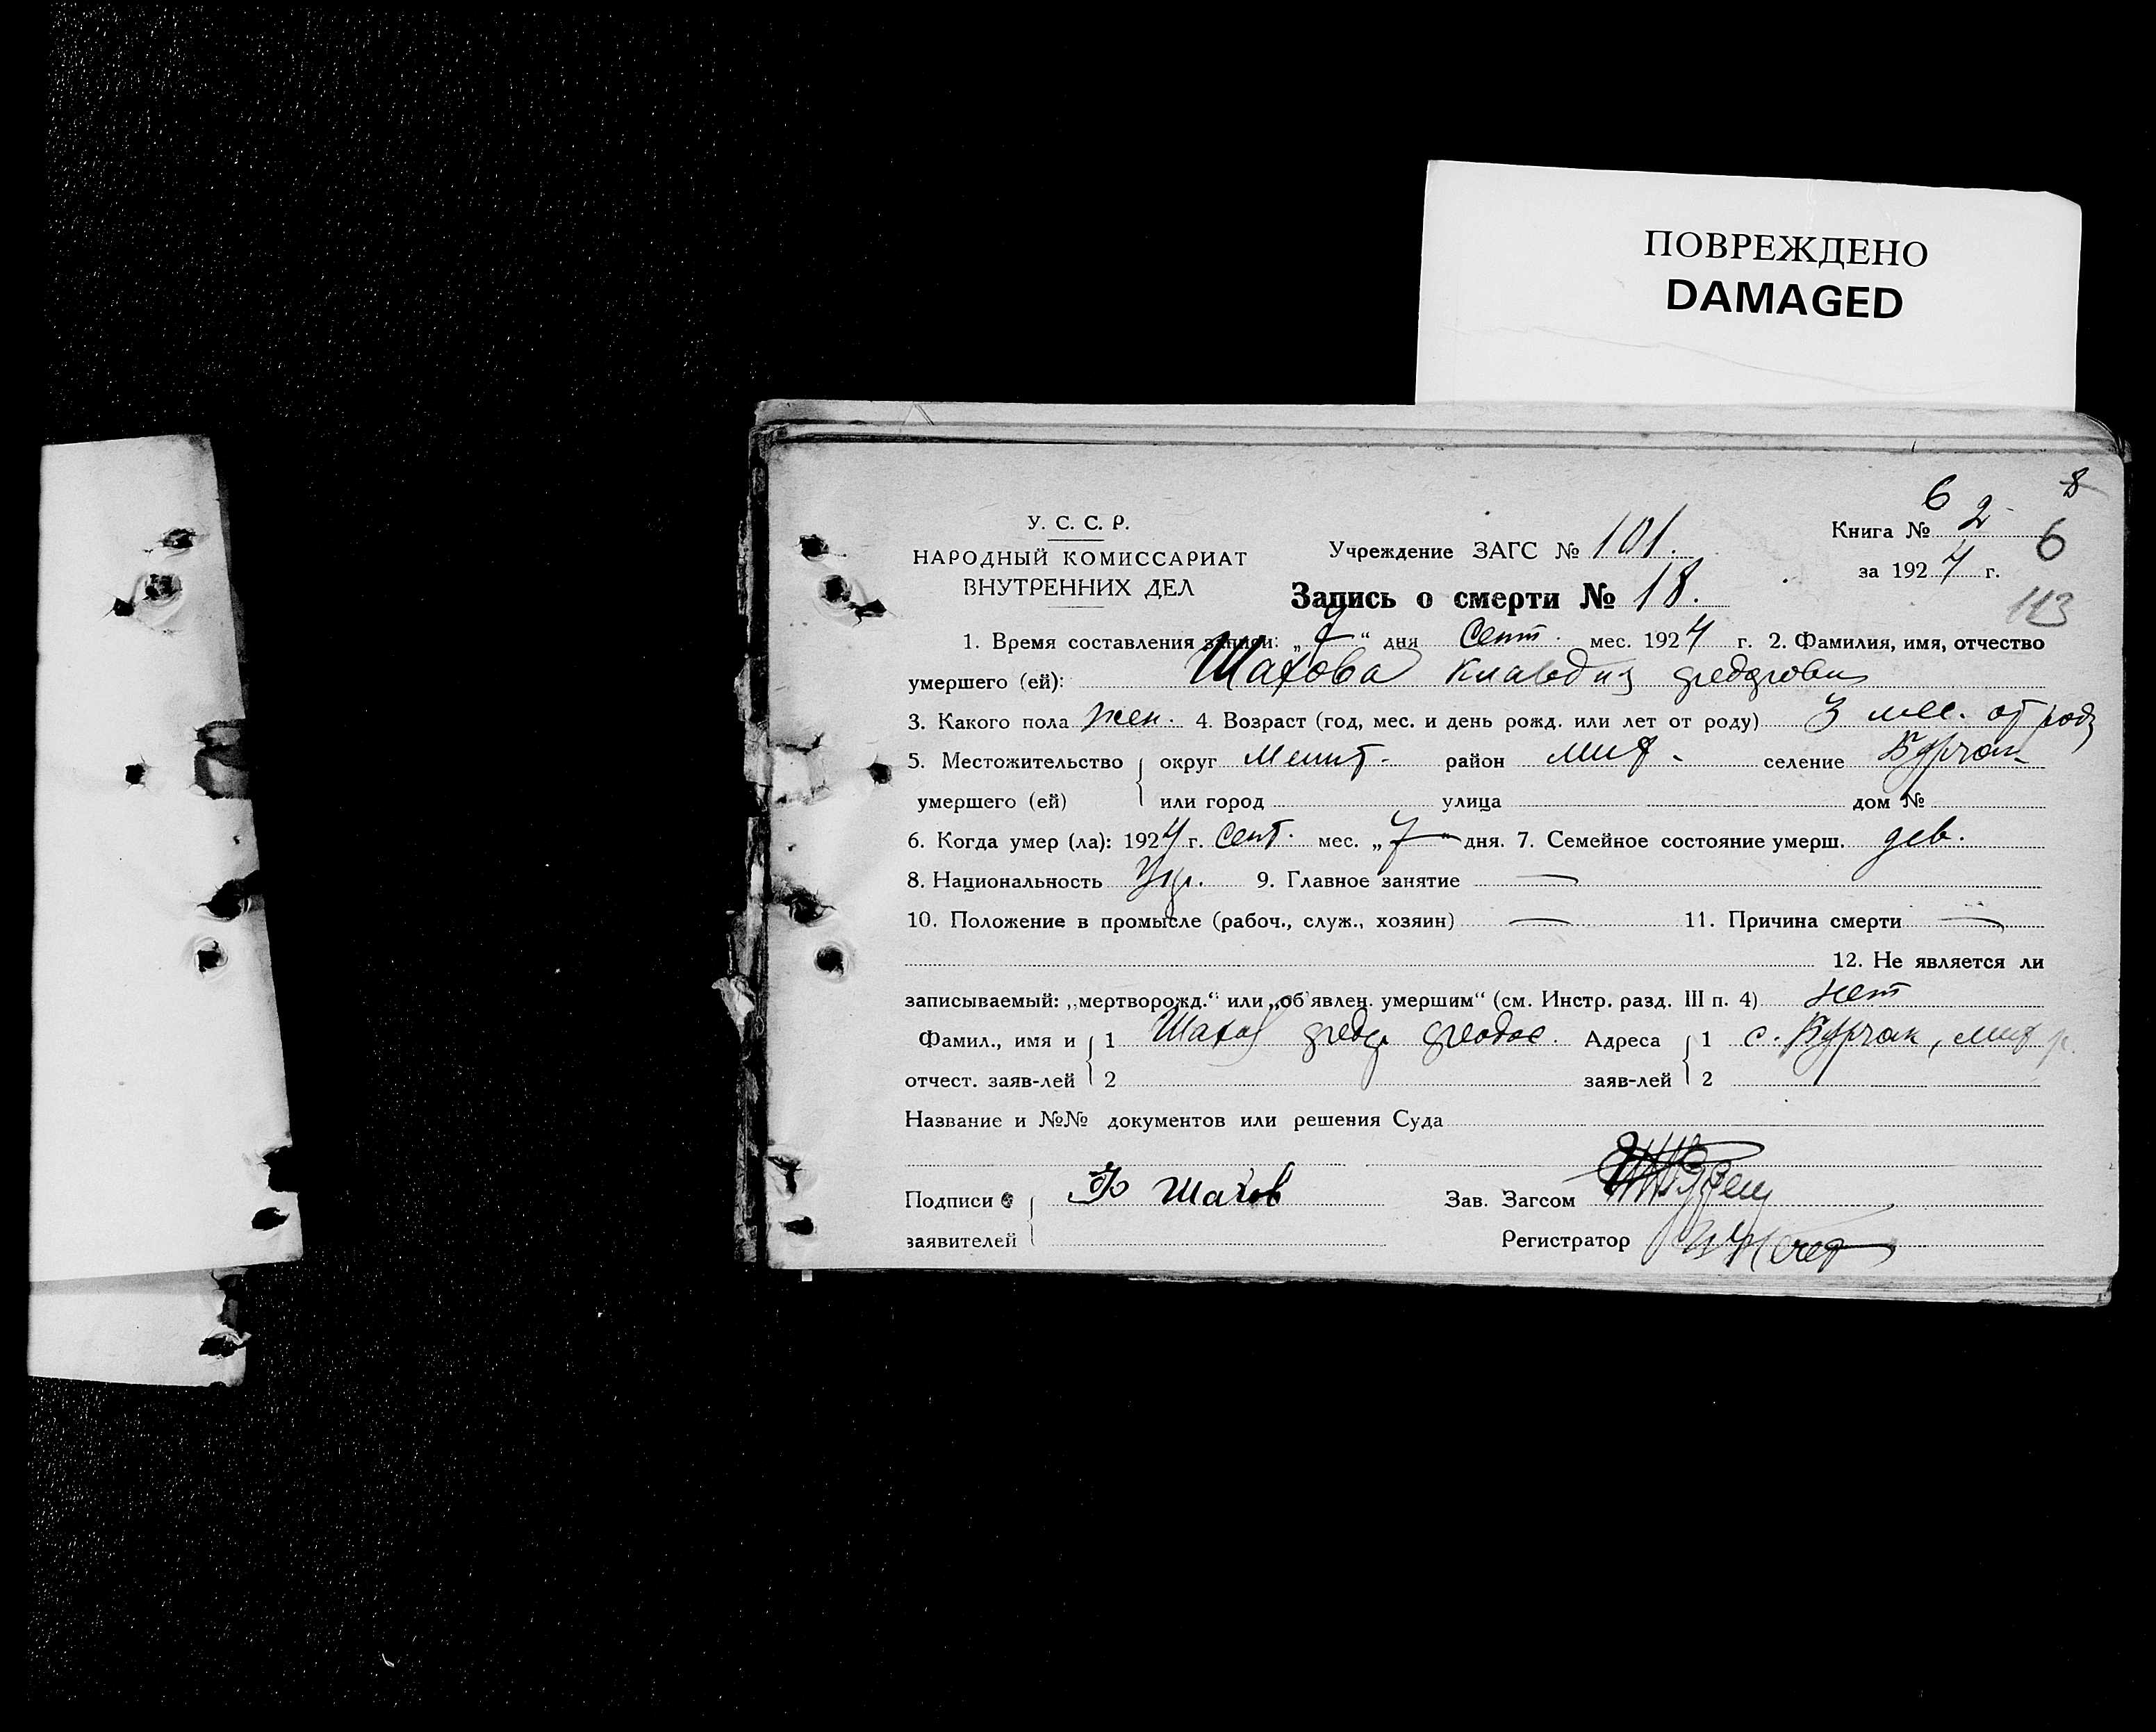 ПОВРЕЖДЕНО
DAMAGED
6 8
У. С. С. Р.
НАРОДНЫЙ КОМИССАРИАТ
ВНУТРЕННИХ ДЕЛ
Учреждение ЗАГС № 101.
Запись о смерти № 18.
Книга № 2 6
за 1924 г.
113
1. Время составления записи: „ “ дня Сент. мес. 1924 г. 2. Фамилия, имя, отчество
умершего (ей): Шахова Клавдия
3. Какого пола жен. 4. Возраст (год, мес. и день рожд. или лет от роду) 3 мес. от роду
5. Местожительство округ Мелит. район селение Бурчак
умершего (ей) или город улица дом №
6. Когда умер (ла): 1924 г. сент. мес. „7“ дня. 7. Семейное состояние умерш. дев.
8. Национальность Укр. 9. Главное занятие —
10. Положение в промысле (рабоч., служ., хозяин) — 11. Причина смерти —
12. Не является ли
записываемый: „мертворожд.“ или „об'явлен. умершим“ (см. Инстр. разд. III п. 4) нет
Фамил., имя и 1 Шахов Адреса 1 с. Бурчак,
отчест. заяв-лей 2 заяв-лей 2
Название и №№ документов или решения Суда
Подписи Ф Шахов Зав. Загсом
заявителей Регистратор